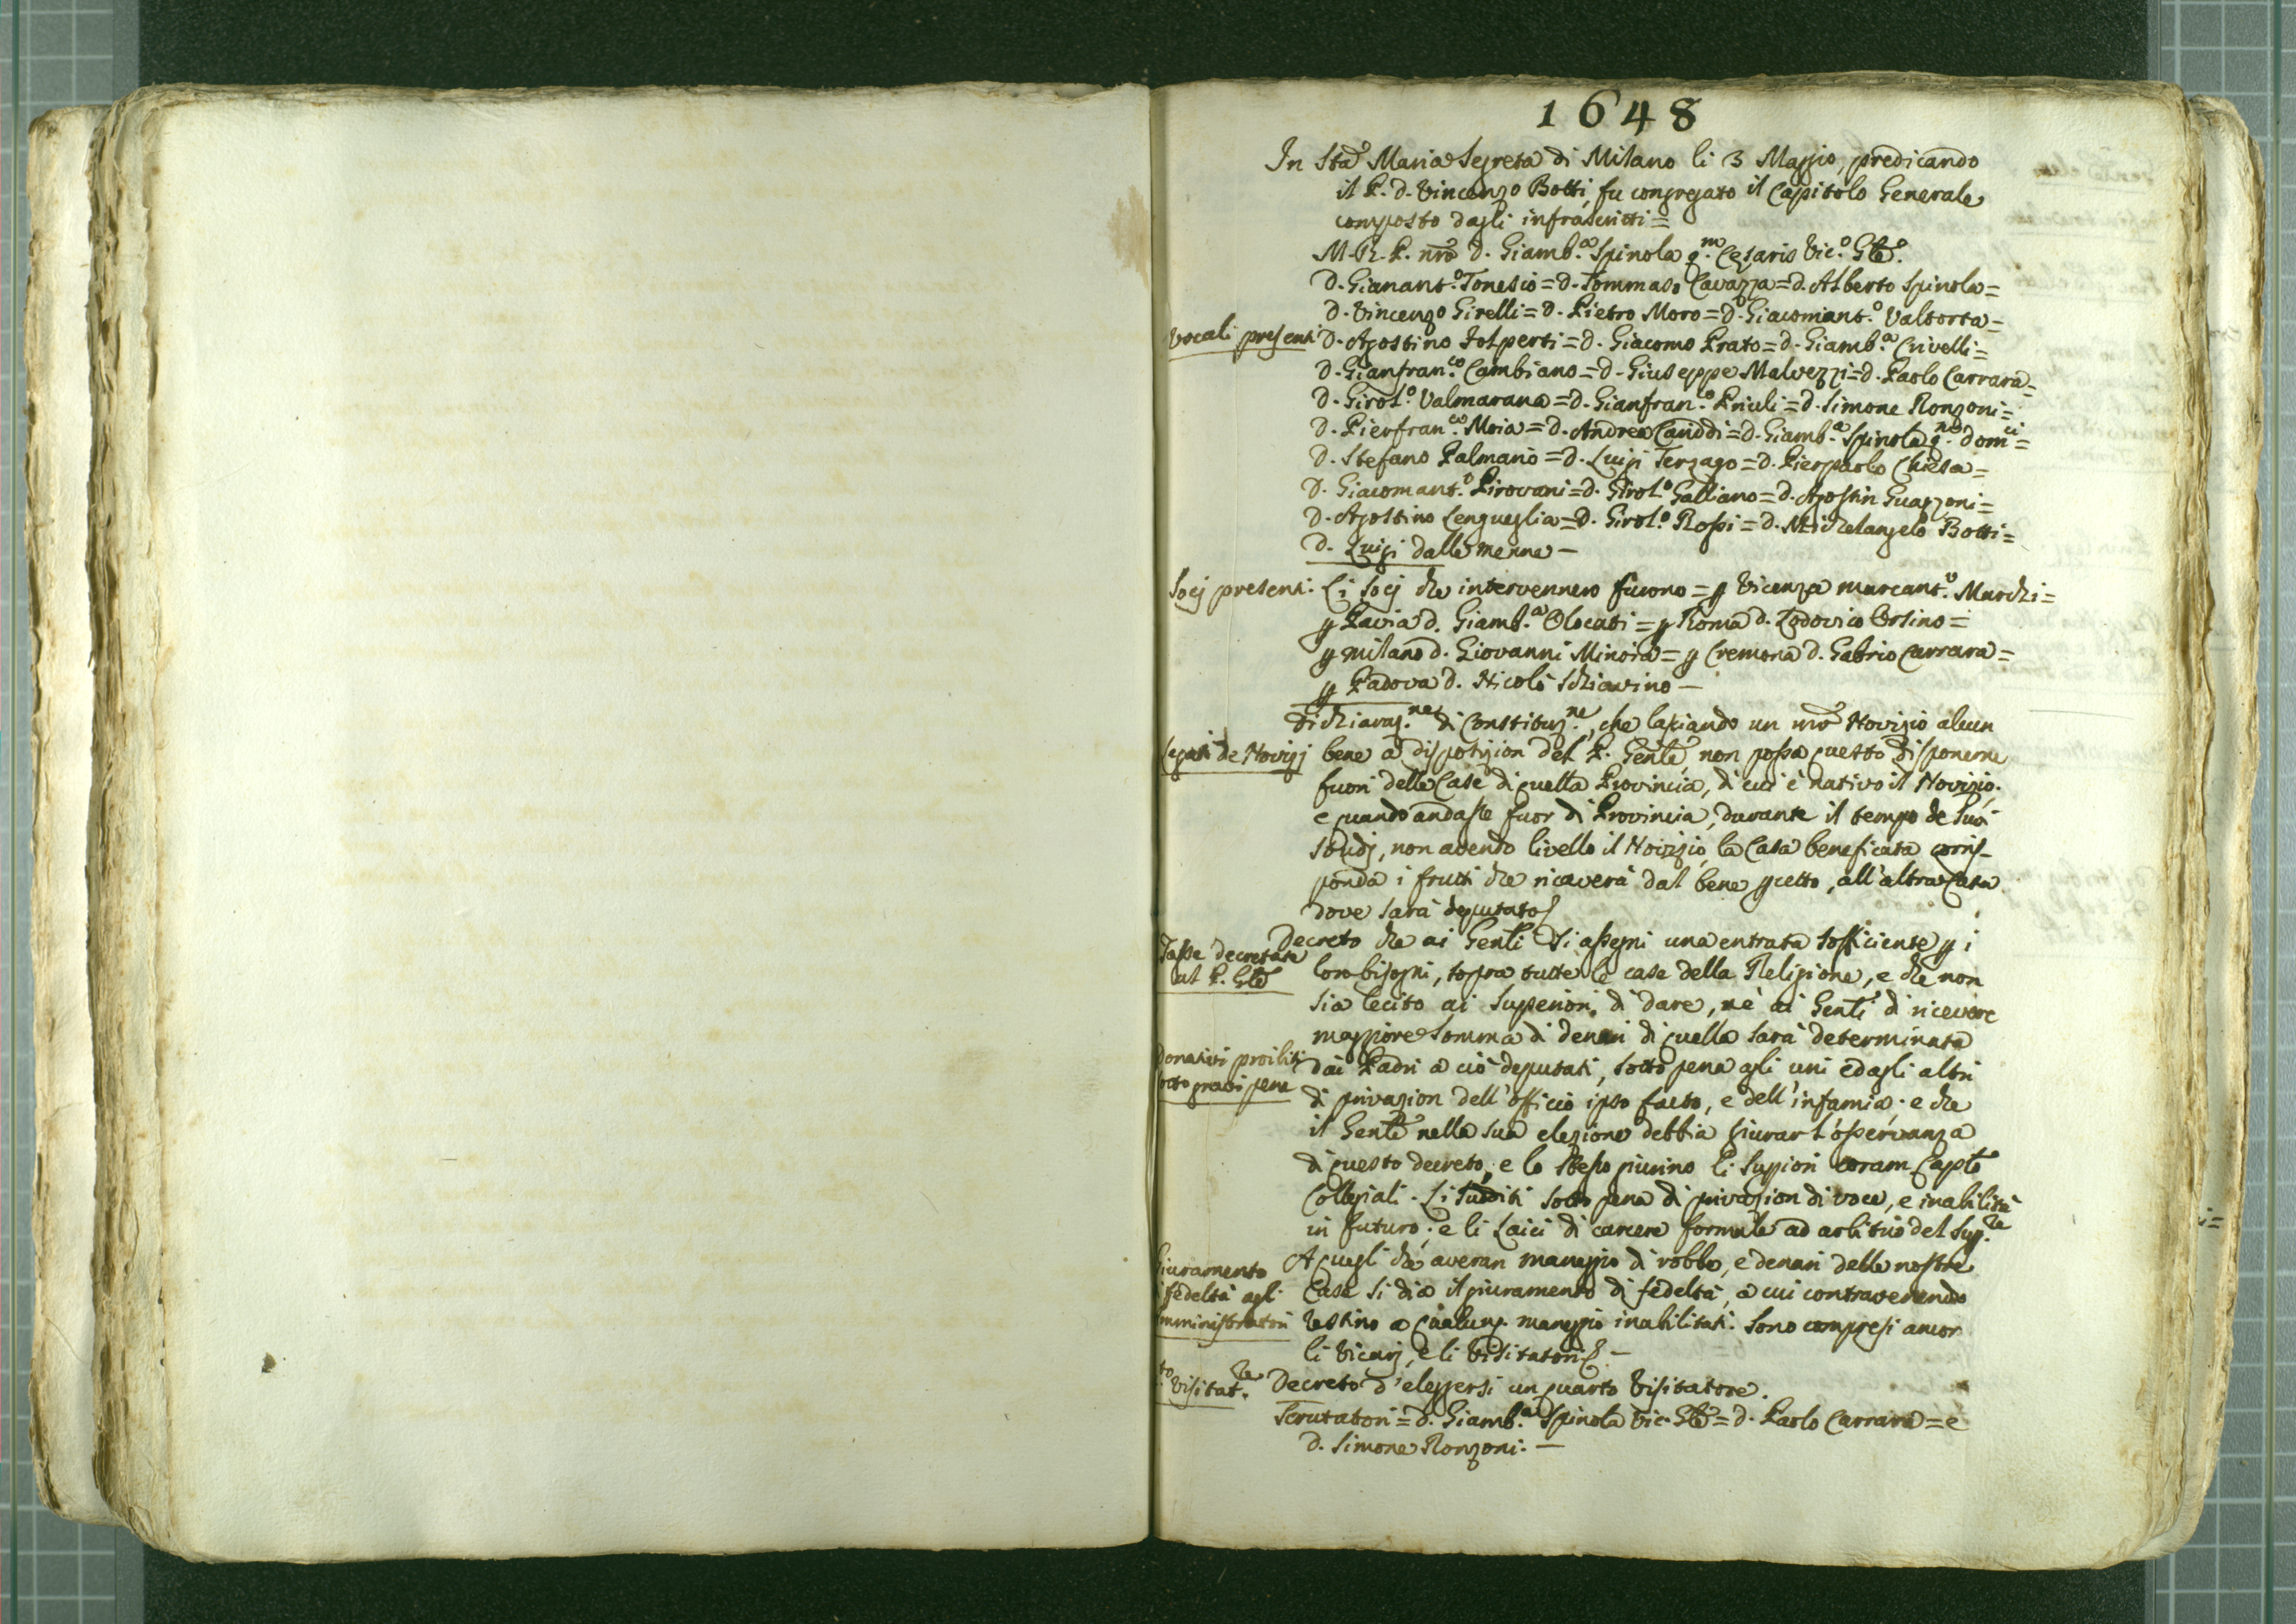 1648
In Sta Maria Segreta di Milano li 3 Maggio, predicando
il P. D. Vincenzo Botti, fu congregato il Capitolo Generale
composto dagli infrascritti =
M. R. P. nro D. Giamb.a Spinola q.m Cesaris Vic.o Gle.
D. Gianant.o Tonesio = D. Tommaso Cavazza = D. Alberto Spinola =
D. Vincenzo Girelli = D. Pietro Moro = D. Giacomant.o Valtorta =
Vocali presenti D. Agostino Tolperti = D. Giacomo Prato = D. Giamb.a Crivelli =
D. Gianfran.co Cambiano = D. Giuseppe Malvezzi = D. Paolo Carrara =
D. Girol.o Valmarana = D. Gianfran.co Priuli = D. Simone Ronzoni =
D. Pierfran.co Moia = D. Andrea = D. Giamb.a Spinola q.m Dom.ci =
D. Stefano Palmano = D. Luigi Terzago = D. Pierpaolo Chiesa =
D. Giacomant.o Pirovani = D. Girol.o Galliano = D. Agostin Guazzoni =
D. Agostino Lengueglia = D. Girol.o Rossi = D. Michelangelo Botti =
D. Luigi dalle menne —
Socj presenti. Li Socj che intervennero furono = p Vicenza marcant.o Marchi =
p Pavia D. Giamb.a Olocati = p Roma D. Lodovico Orsino =
p milano D. Giovanni Minoia = p Cremona D. Gabrio Carrara =
p Padova D. Nicolò Schiavino —
Dichiaraz.ne di Constituz.ne, che lasciando un nro Novizio alcun
Legati de Novizj bene a disposizion del P. Genle, non possa questo disponerne
fuori delle Case di quella Provincia, di cui è nativo il Novizio.
e quando andasse fuor di Provincia, durante il tempo de suoi
studj, non avendo livello il Novizio, la Casa beneficata corris-
ponda i frutti che ricaverà dal bene pcetto, all'altra Casa
dove sarà deputato
Decreto che ai Genli si assegni una entrata sofficiente p i
Tasse decretate
al P. Gle
lor bisogni, sopra tutte le case della Religione, e che non
sia lecito ai Superiori di dare, nè ai Genli di ricevere
maggiore somma di denari di quella sarà determinata
Donativi proibiti
sotto gravi pene
dai Padri a ciò deputati, sotto pena agli uni ed agli altri
di privazion dell'officio ipso facto, e dell'infamia. e che
il Genle nella sua elezione debbia giurar l'osservanza
di questo decreto; e lo stesso giurino li Supiori coram Caplo
Collegiali. Li Sudditi sotto pena di privazion di voce, e inabilità
in futuro; e li Laici di carcere formale ad arbitrio del Sup.re
Giuramento
fedeltà agli
mministratori
A quegli che averan maneggio di robbe, e denari delle nostre
Case si dia il giuramento di fedeltà, a cui contravenendo
restino a qualunq. maneggio inabilitati. Sono compresi ancor
li Vicarj, e li Visitatori —
to Visitat.re Decreto d'elegersi un quarto Visitatore.
Scrutatori = D. Giamb.a Spinola Vic. Gle = D. Paolo Carrara = e
D. Simone Ronzoni. —